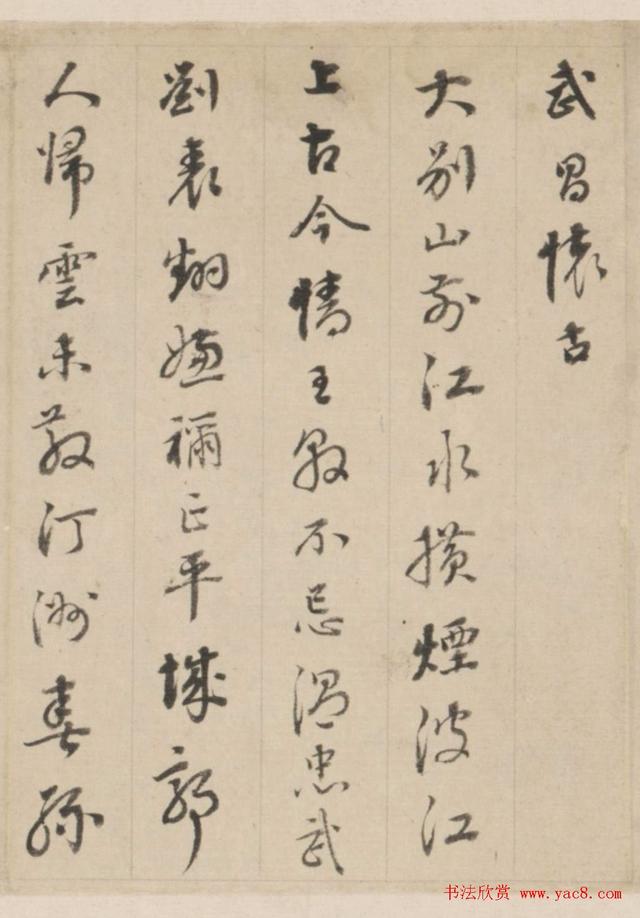 武昌懷古
大別山前江水横煙波江
上古今情王敦不忌溫忠武
劉表翻嫌禰正平城郭
人歸雲未散汀洲春綠
书法欣赏 www.yac8.com